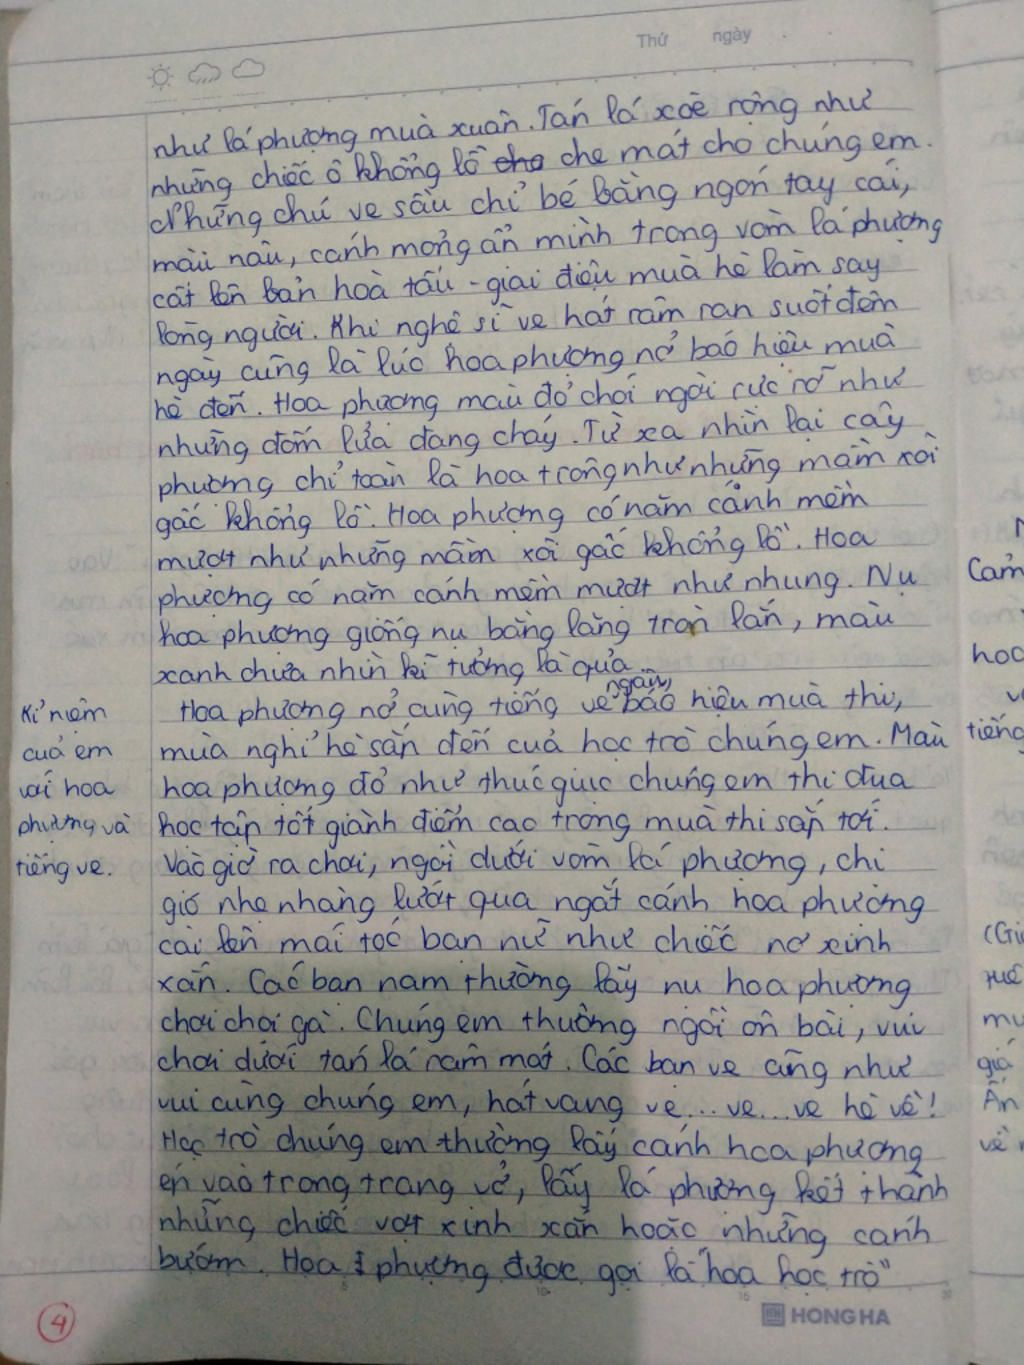 Thứ ngày
như lá phượng muà xuân. Tán lá xoè rộng như
những chiếc ô khổng lồ cho che mát cho chúng em.
Những chú ve sầu chỉ bé bằng ngón tay cái,
màu nâu, cánh mỏng ẩn mình trong vòm lá phượng
cất lên bản hoà tấu - giai điệu muà hè làm say
lòng người. Khi nghệ sĩ ve hát râm ran suốt đêm
ngày cũng là lúc hoa phượng nở báo hiệu muà
hè đến. Hoa phượng màu đỏ chói ngời rực rỡ như
những đốm lửa đang cháy. Từ xa nhìn lại cây
phượng chỉ toàn là hoa trông như những mâm xôi
gấc khổng lồ. Hoa phượng có năm cánh mềm
mượt như những mâm xôi gấc khổng lồ. Hoa
phượng có năm cánh mềm mượt như nhung. Nụ
hoa phượng giống nụ bằng lăng tròn lẳn, màu
xanh chưa nhìn kĩ tưởng là quả.
Hoa phượng nở cùng tiếng ve ngân, báo hiệu muà thi,
mùa nghỉ hè sắp đến cuả học trò chúng em. Màu
hoa phượng đỏ như thúc giục chúng em thi đua
học tập tốt giành điểm cao trong muà thi sắp tới.
Vào giờ ra chơi, ngồi dưới vòm lá phượng, chị
gió nhẹ nhàng lướt qua ngắt cánh hoa phượng
cài lên mái tóc bạn nữ như chiếc nơ xinh
xắn. Các bạn nam thường lấy nụ hoa phượng
chơi chọi gà. Chúng em thường ngồi ôn bài, vui
chơi dưới tán lá râm mát. Các bạn ve cũng như
vui cùng chúng em, hát vang ve...ve...ve hè về!
Học trò chúng em thường lấy cánh hoa phượng
ép vào trong trang vở, lấy lá phượng kết thành
những chiếc vợt xinh xắn hoặc những cánh
bướm. Hoa phượng được gọi là "hoa học trò"
Kỉ niệm
cuả em
với hoa
phượng và
tiếng ve.
4
HONG HA
Cảm
hoc
tiếng
(Gi
mu
giá
Ấn
về